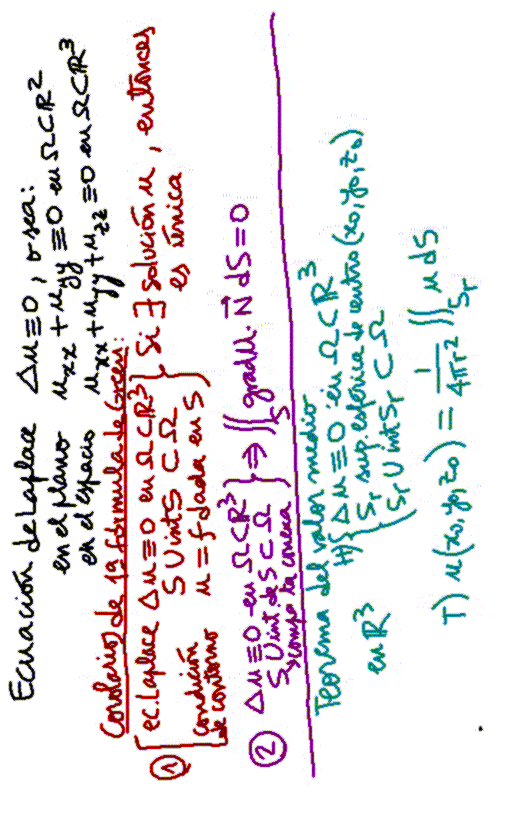 Ecuación de Laplace Δu≡0, o sea:
en el plano u_xx + u_yy ≡0 en Ω⊂ℝ²
en el espacio u_xx + u_yy + u_zz ≡0 en Ω⊂ℝ³
Corolarios de 1ª fórmula de Green:
① { ec. Laplace Δu≡0 en Ω⊂ℝ³
S ∪ int S ⊂ Ω
condición de contorno u = f dada en S } Si ∃ solución u, entonces
es única
② Δu≡0 en Ω⊂ℝ³
S ∪ int. de S ⊂ Ω } ⇒ ∬_S grad u · N⃗ dS = 0
compacta conexa
Teorema del valor medio
en ℝ³ H) { Δu≡0 en Ω⊂ℝ³
S_r sup. esférica de centro (x₀,y₀,z₀)
S_r ∪ int S_r ⊂ Ω
T) u(x₀,y₀,z₀) = 1/(4πr²) ∬_{S_r} u dS